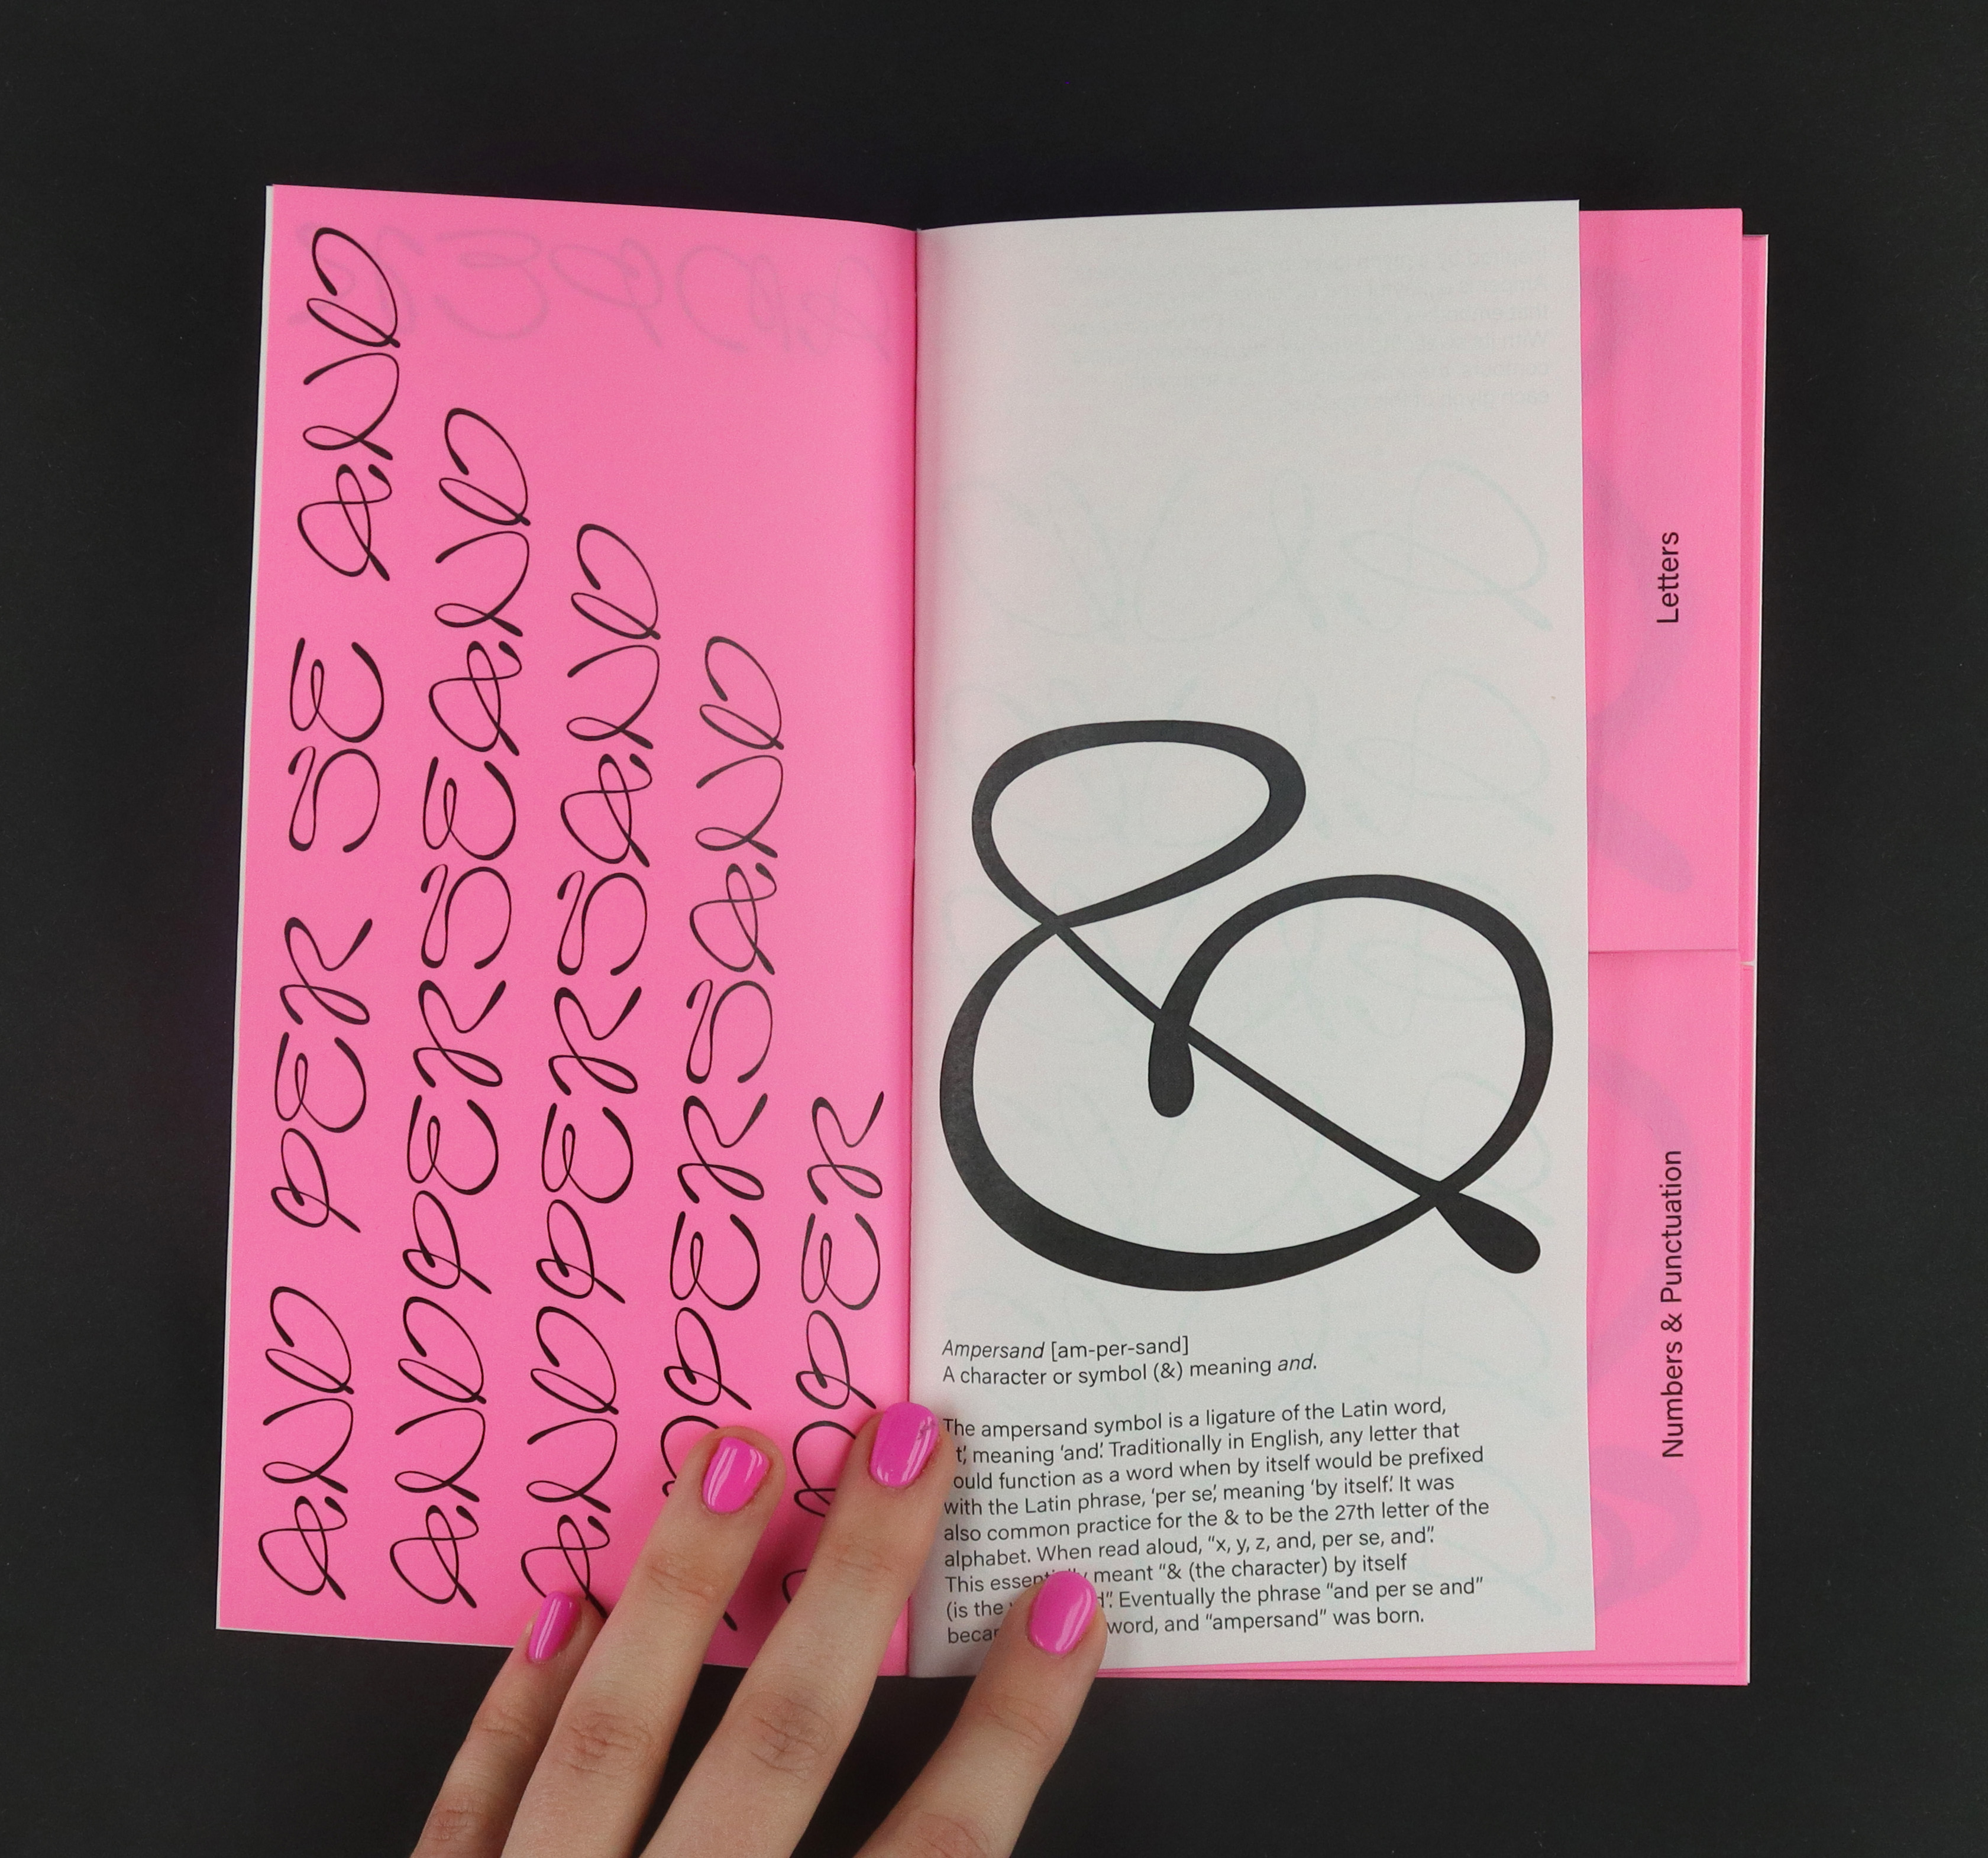 AND PER SE AND
ANDPERSEAND
ANDPERSAND
PERSAND
PER
Ampersand [am-per-sand]
A character or symbol (&) meaning and.
The ampersand symbol is a ligature of the Latin word,
meaning ‘and’. Traditionally in English, any letter that
function as a word when by itself would be prefixed
with the Latin phrase, ‘per se’, meaning ‘by itself’. It was
also common practice for the & to be the 27th letter of the
alphabet. When read aloud, “x, y, z, and, per se, and”.
This essentially meant “& (the character) by itself
(is the Eventually the phrase “and per se and”
word, and “ampersand” was born.
Letters
Numbers & Punctuation